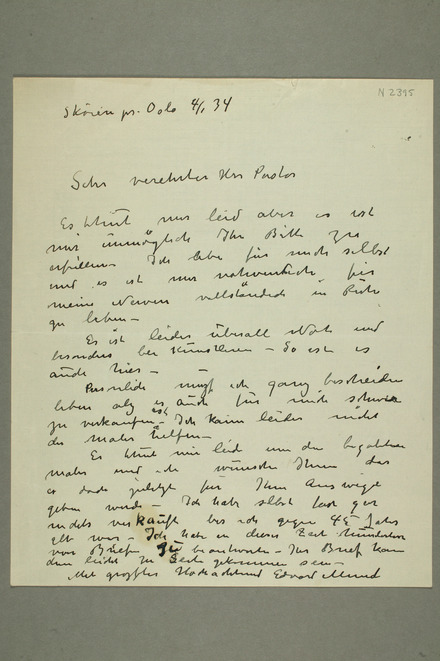 N 2395
Sköien pr. Oslo 4/1 34
Sehr verehrter Herr Pastor
Es thut mir leid aber es ist
mir unmöglich Ihr Bitte zu
erfüllen – Ich lebe für mich selbst
und es ist nur nothwendich für
meine Nerven vollständich in Ruhe
zu leben –
Es ist leider überall Noth und
besonders bei Künstleren – So ist es
auch hier –
Persönlich muss ich ganz bescheiden
leben als es auch für mich schwer
zu verkaufen ist – Ich kann leider nicht
der Maler helfen –
Es thut mir leid um den begabten
Maler und ich wünsche Ihnen das
es doch zuletzt für Ihm Auswege
geben werde – Ich habe selbst fast gar
nichts verkauft bis ich gegen 45 Jahre
alt war – Ich habe in dieser Zeit
von Briefen zu beantworten – Ihr Brief kann
dann leicht zu gekommen sein –
Mit grösster Hochachtund Edvard Munch